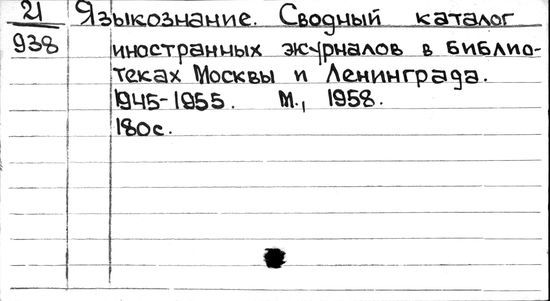 21 Языкознание. Сводный каталог
938 иностранных журналов в библио-
теках Москвы и Ленинграда.
1945-1955. М., 1958.
180с.